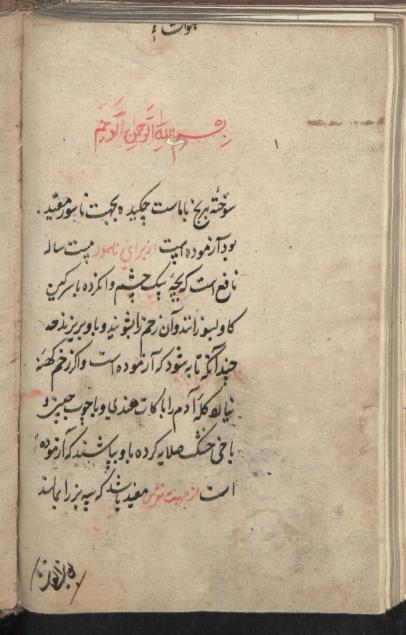 بسم الله الرحمن الرحیم
سوخته برنج با ماست چکیده بجهت ناسور مفید
بود آزموده است از برای ناسور بیست ساله
نافع است که بچه سک چشم وانکرده با سرکین
کاو بسوزانند و آن زخم را بشویند و باو بریزند
چندانکه تا به شود که آزموده است و اگر زخم کهنه
کله آدم را با کات هندی و با چوب چینی و
خشک صلایه کرده باو بپاشند که آزموده
است از جهت مفید باشد که سپرز را بمالند